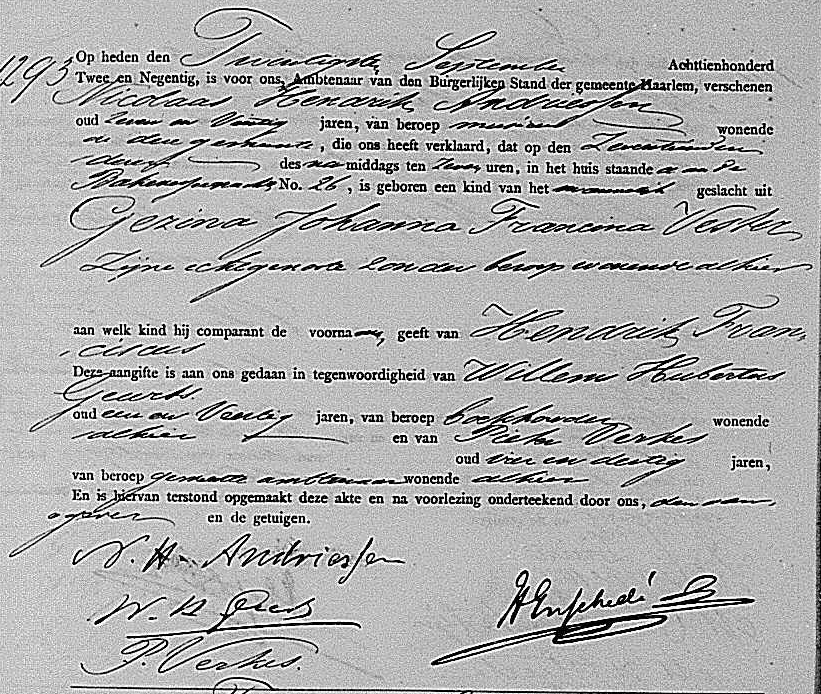 1293
Op heden den Twintigste September Achttienhonderd
Twee en Negentig, is voor ons, Ambtenaar van den Burgerlijken Stand der gemeente Haarlem, verschenen
Nicolaas Hendrik Andriessen
oud zeven en Veertig jaren, van beroep musicus wonende
in deze gemeente, die ons heeft verklaard, dat op den Zeventienden
dezer des namiddags ten uren, in het huis staande aan de
No. 26, is geboren een kind van het mannelijk geslacht uit
Gezina Johanna Francina Vester
Zijne echtgenoote zonder beroep wonende alhier
aan welk kind hij comparant de voornamen, geeft van Hendrik Fran-
ciscus
Deze aangifte is aan ons gedaan in tegenwoordigheid van Willem Hubertus
Geurts
oud een en Veertig jaren, van beroep boekhouder wonende
alhier en van Pieter Verkes
oud vier en dertig jaren,
van beroep gemeente ambtenaar wonende alhier
En is hiervan terstond opgemaakt deze akte en na voorlezing onderteekend door ons, den aan-
gever en de getuigen.
N. H. Andriessen
W. H. Geurts
HEnschedé
P. Verkes.